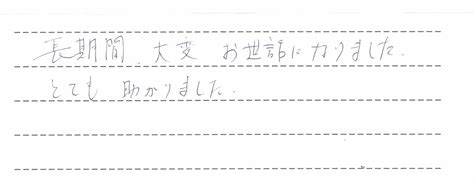 長期間、大変 お世話になりました.
とても 助かりました.